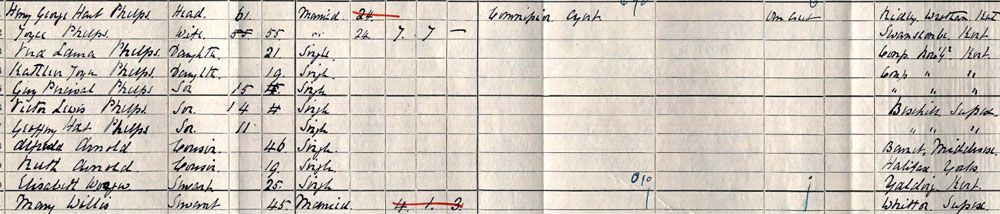 Henry George Hart Phelps Head 61 Married 24 Commission Agent Own acct Ridley Wrotham Kent
Joyce Phelps Wife 55 55 " 24 7 7 — Swanscombe Kent
Laura Phelps Daughter 21 Single Kent
Kathleen Joyce Phelps Daughter 19 Single " "
Guy Percival Phelps Son 15 15 Single " " "
Victor Lewis Phelps Son 14 Single Bexhill Sussex
Geoffrey Hart Phelps Son 11 Single " " "
Arnold Cousin 46 Single Barnet Middlesex
Ruth Arnold Cousin 19 Single Halifax Yorks
Elizabeth Servant 25 Single 010 Yalding Kent
Mary Willis Servant 45 Married 4 1 3 Sussex